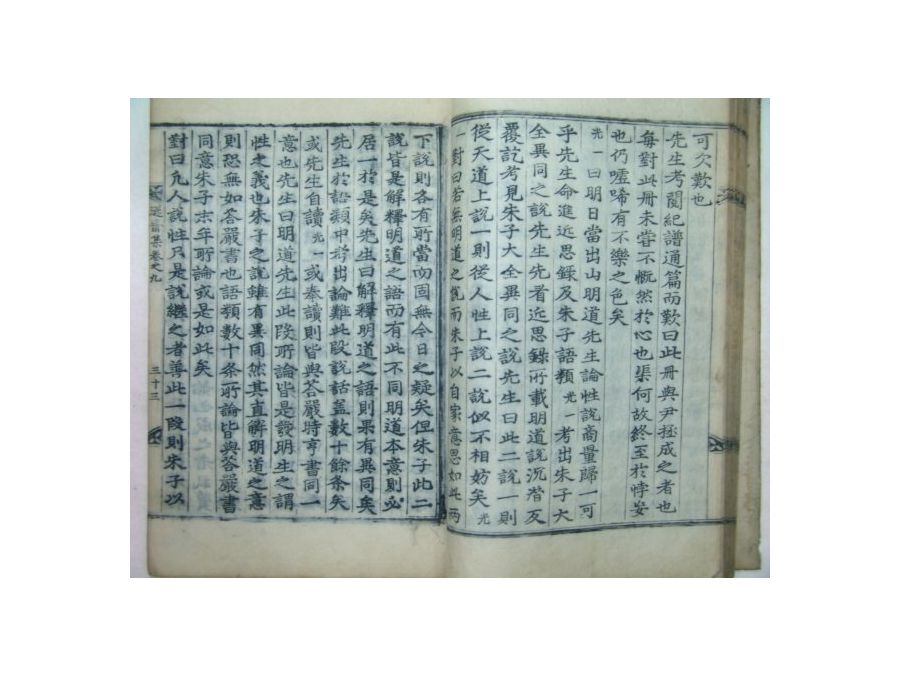 可欠歎也
先生考閱紀譜通篇而歎曰此冊與尹拯成之者也
每對此冊未嘗不慨然於心也渠何故終至於悖妄
也仍噓唏有不樂之色矣
光一曰明日當出山明道先生論性說商量歸一可
乎先生命進近思錄及朱子語類光一考出朱子大
全異同之說先生先看近思錄所載明道說沉潛反
覆訖考見朱子大全異同之說先生曰此二說一則
從天道上說一則從人性上說二說似不相妨矣光
一對曰若無明道之說而朱子以自家意思如此兩
下說則各有所當而固無今日之疑矣但朱子此二
說皆是解釋明道之語而有此不同明道本意則必
居一於是矣先生曰解釋明道之語則果有異同矣
先生於語類中考出論難此段說話蓋數十餘条矣
或先生自讀光一或奉讀則皆與答嚴時亨書同一
意也先生曰明道先生此段所論皆是發明生之謂
性之義也朱子之說雖有異同然其直解明道之意
則恐無如答嚴書也語類數十条所論皆與答嚴書
同意朱子末年所論或是如此矣
對曰凡人說性只是說繼之者善此一段則朱子以
集卷之九
三十三